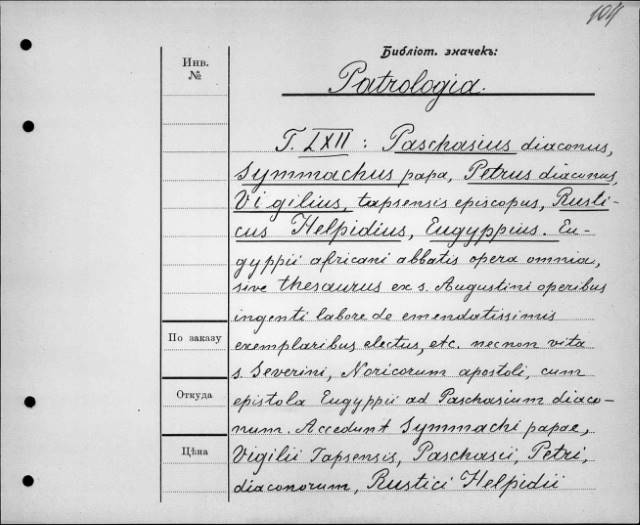 104
Библіот. значекъ:
Инв.
№
Patrologia.
T. LXII : Paschasius diaconus,
Symmachus papa, Petrus diaconus,
Vigilius, tapsensis episcopus, Rusti-
cus Helpidius, Eugyppius. Eu-
gyppii africani abbatis opera omnia,
sive thesaurus ex s. Augustini operibus
ingenti labore de emendatissimis
По заказу
exemplaribus electus, etc. necnon vita
s. Severini, Noricorum apostoli, cum
Откуда
epistola Eugyppii ad Paschasium diaco-
num. Accedunt Symmachi papae,
Цѣна
Vigilii Tapsensis, Paschasii, Petri,
diaconorum, Rustici Helpidii